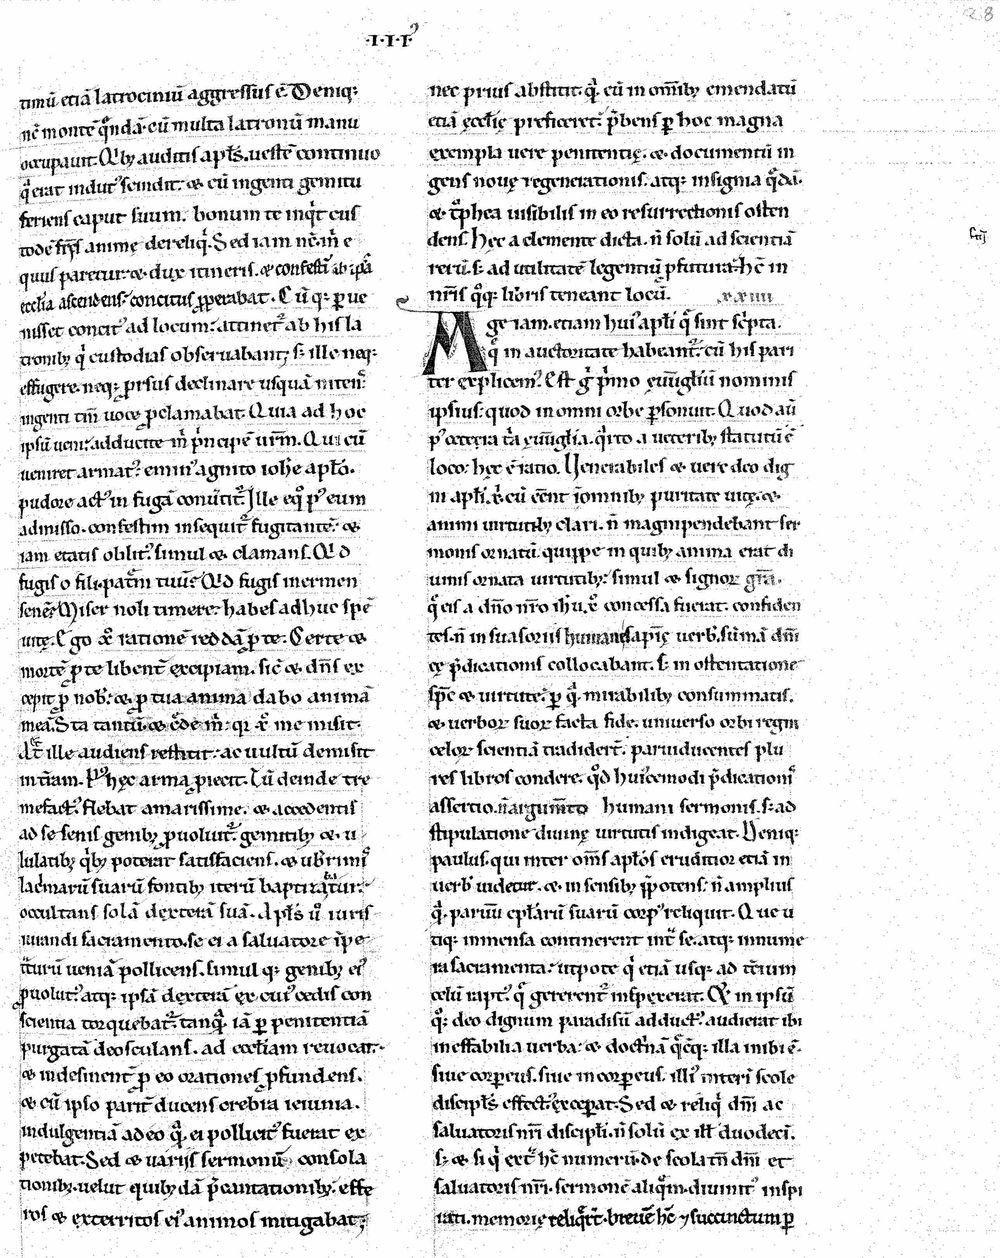 28
·I·I·I·
timū etiā latrociniū aggressus ē. Deniq;
nē montē q̄ndā cū multa latronū manu
occupauit. Q̇ by auditis apl̄s. uestē continuo
q̇ erat indut᾽ scindit: & cū ingenti gemitu
feriens caput suum. bonum te inq̇t cus
todē fr̄is animę dereliq̇. Sed iam nē m̄ e
quus paretur. & dux itineris. & confestī ab ip̄a
eccl̄ia ascendens. concitus ꝓperabat. Cūq; ꝑue
nisset concit᾽ ad locum: attinet᾽ ab his la
tronib; q̇ custodias obseruabant; s; ille neq;
effugere. neq; ꝓrsus declinare usquā nitens.
ingenti tm̄ uoce ꝓclamabat. Quia ad hoc
ipsū ueni: adducite m̄ ṗncipē ur̄m. Qui cū
ueniret armat᾽. emin᾽ agnito ioh̄e apl̄o.
pudore act᾽ in fugā conūtit᾽. Ille eq̊ p᾽ eum
admisso. confestim insequit᾽ fugitantē. &
iam etatis oblit᾽. simul & clamans. Q̇d
fugis o fili. patr̄m tuū? Q̇d fugis inermen
senē? Miser noli timere. habes adhuc spē
uitę. Ego xp̄o rationē reddā ꝓ te. Certe &
mortē ꝓ te libent̄ excipiam. sic̄ & dn̄s ex
cepit ꝓ nob᾽. & ꝓ tua anima dabo animā
meā. Sta tantū. & c̄de m̄. q̇ xp̄c me misit.
At ille audiens restitit. ac uultū demisit
in t̄ram. P᾽ hęc arma ꝓiecit. Tū deinde tre
mefact᾽. flebat amarissime. & accedentis
ad se senis genib; ꝓuoluit᾽. gemitib; & u
lulatib; q̇b; poterat satisfaciens. & ub̄rimis
lac̄marū suarū fontib; iterū baptizatur.
occultans solā dexterā suā. Apl̄s ū iuris
iurandi sacramento. se ei a saluatore īpe
t̄turū ueniā pollicens. simul q; genib; ei᾽
ꝓuolut᾽. atq; ipsā dexterā ex cui᾽ cedis con
scientia torquebat᾽. tanq̄ iā ꝑ penitentiā
purgatā deosculans. ad eccl̄iam reuocat.
& indesinent̄ ꝓ eo orationes ꝓfundens.
& cū ipso parit̄ ducens crebra ieiunia.
indulgentiā a deo q̄ ei pollicit᾽ fuerat ex
petebat. Sed & uariis sermonū consola
tionib;. uelut quibus dā p̄cantationib;. effe
ros & exterritos ei᾽ animos mitigabat;
nec prius abstitit. q̄ cū in om̄ib; emendatū
etiā ęcclię preficeret. p̄bens ꝑ hoc magna
exempla uere penitentię. & documentū in
gens nouę regenerationis. atq; insignia q̄dā.
& t̊phea uisibilis in eo resurrectionis osten
dens. Hęc a clemente dicta. n̄ solū ad scientiā
rerū. s; ad utilitatē legentiū ꝓfutura. hc̄ in
nr̄is q̊q; libris teneant locū. xxiiii
Age iam. etiam hui᾽ apl̄i q̄ sint sc̄pta.
q̄ in auctoritate habeant᾽. cū his pari
ter explicem᾽. Est ḡ p̄mo euu̅gl̅iū nominis
ipsius. quod in omni orbe ꝑsonuit. Quod aū
p᾽ cetera t̄a euu̅gl̅ia. q̇rto a ueterib; statutū ē
loco. hęc ē ratio. Uenerabiles & uere deo dig
ni apl̄i xp̄i cū eēnt ī omnib; puritate uitę. &
animi uirtutib; clari. n̄ magnipendebant ser
monis ornatū. quippe in quib; anima erat di
uinis ornata uirtutib;. simul & signoꝝ gr̄a.
q̄ eis a dn̄o nr̄o ih̄u xp̄o concessa fuerat. confiden
tes. n̄ in suasoriis humanę sapię uerb̄. sūmā dm̄
cę p̄dicationis collocabant. s; in ostentatione
sp̄c & uirtute. ꝑ q̄ mirabilib; consummatis.
& uerboꝝ suoꝝ facta fide. uniuerso orbi regni
celoꝝ scientiā tradidert̄. parui ducentes plu
res libros condere. q̊d hui᾽cemodi p̄dicationis
assertio. n̄ argum̄to humani sermonis. s; ad
stipulatione diuinę uirtutis indigeat. Deniq;
paulus. qui inter om̄s apl̄os eruditior etiā in
uerb̄ uidetur. & in sensib; p̄potens. n̄ amplius
q̄. paruū epl̄arū suarū corp᾽ reliquit. Que u
tiq; inmensa continerent int̄ se. atq; innume
ra sacramenta. utpote q̇ etiā usq; ad tc̄ium
celū rapt᾽. q̄ gererent᾽ inspexerat. Q̇ in ipsū
q̊q; deo dignum paradisū adduct᾽. audierat ibi
ineffabilia uerba. & doct̄nā q̄cq̄; illa inibi ē.
siue corꝑeus. siue incorꝑeus. illi᾽ interī scole
discipl̄s effect᾽. exceꝑat. Sed & reliq̇ dn̄i ac
saluatoris nr̄i discipl̄i. n̄ solū ex ill̄ duodeci.
s; & si q̇ ext̄ hc̄ numerū. de scola tn̄ dn̄i et
saluatoris nr̄i. sermonē aliq̄m. diuinit᾽ inspi
rati. memorię reliq̄rt̄. breuē hc̄ & succinctum ꝑ